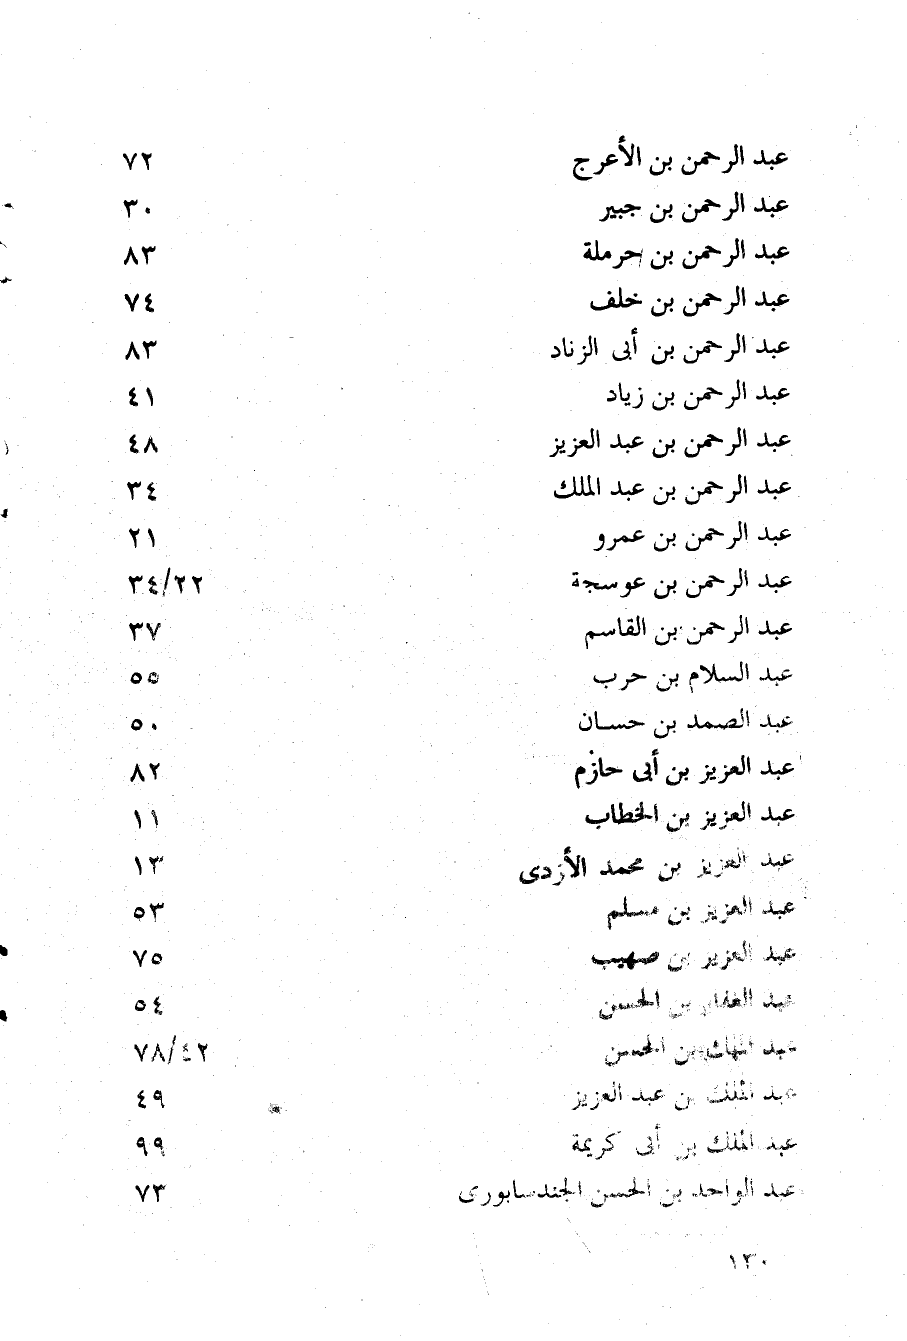 عبد الرحمن بن الأعرج ٧٢
عبد الرحمن بن جبير ٣٠
عبد الرحمن بن حرملة ٨٣
عبد الرحمن بن خلف ٧٤
عبد الرحمن بن أبى الزناد ٨٣
عبد الرحمن بن زياد ٤١
عبد الرحمن بن عبد العزيز ٤٨
عبد الرحمن بن عبد الملك ٣٤
عبد الرحمن بن عمرو ٢١
عبد الرحمن بن عوسجة ٣٤/٢٢
عبد الرحمن بن القاسم ٣٧
عبد السلام بن حرب ٥٥
عبد الصمد بن حسان ٥٠
عبد العزيز بن أبى حازم ٨٢
عبد العزيز بن الخطاب ١١
عبد العزيز بن محمد الأزدى ١٣
عبد العزيز بن مسلم ٥٣
عبد العزيز بن صهيب ٧٥
عبد الغفار بن الحسن ٥٤
عبد بن الحسن ٧٨/٤٢
عبد الملك بن عبد العزيز ٤٩
عبد الملك بن أبى كريمة ٩٩
عبد الواحد بن الحسن الجندسابورى ٧٣
١٣٠